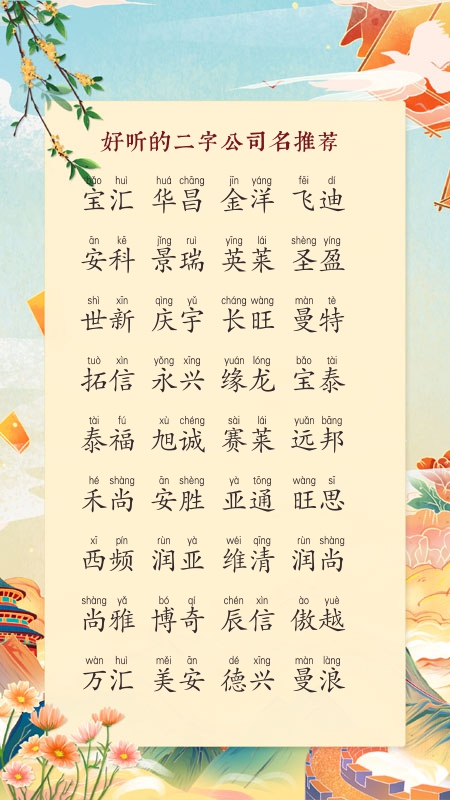 好听的二字公司名推荐
bǎo huì huá chāng jīn yáng fēi dí
宝汇 华昌 金洋 飞迪
ān kē jǐng ruì yīng lái shèng yíng
安科 景瑞 英莱 圣盈
shì xīn qìng yǔ cháng wàng màn tè
世新 庆宇 长旺 曼特
tuò xìn yǒng xīng yuán lóng bǎo tài
拓信 永兴 缘龙 宝泰
tài fú xù chéng sài lái yuǎn bāng
泰福 旭诚 赛莱 远邦
hé shàng ān shèng yà tōng wàng sī
禾尚 安胜 亚通 旺思
xī pín rùn yà wéi qīng rùn shàng
西频 润亚 维清 润尚
shàng yǎ bó qí chén xìn ào yuè
尚雅 博奇 辰信 傲越
wàn huì měi ān dé xīng màn làng
万汇 美安 德兴 曼浪